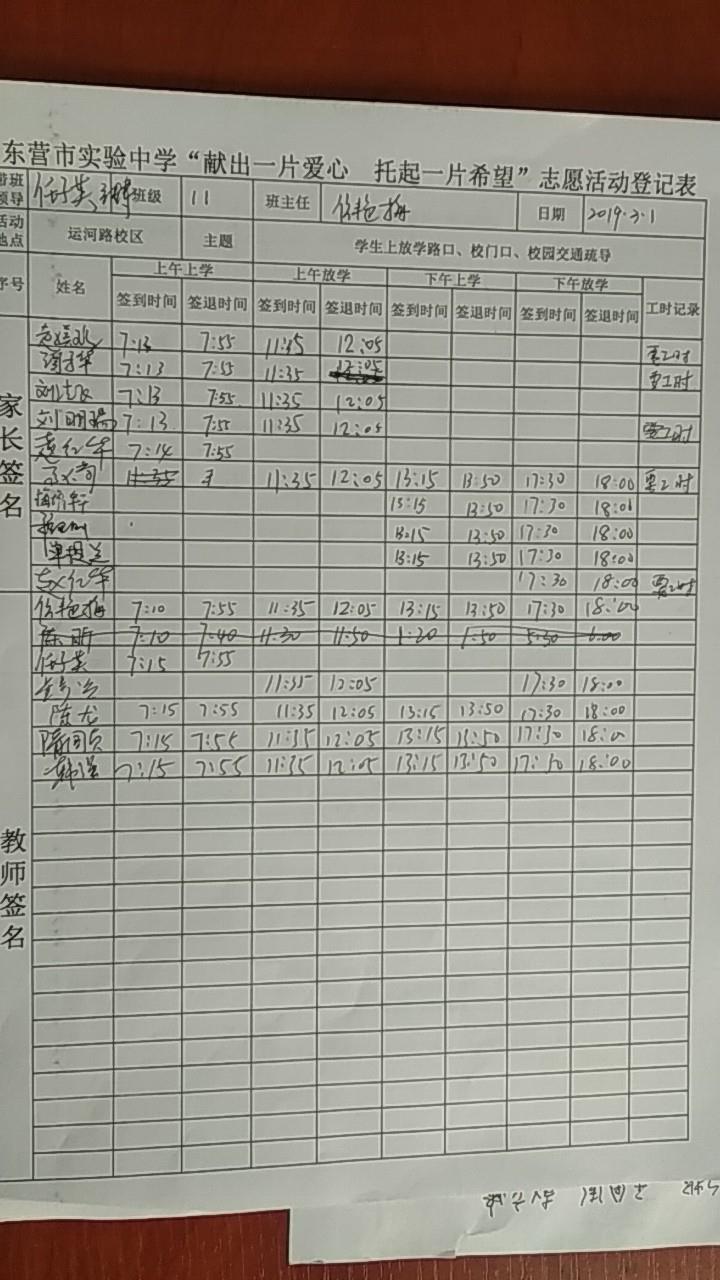 东营市实验中学“献出一片爱心 托起一片希望”志愿活动登记表
带班领导 任子英 班级 11 班主任 徐艳梅 日期 2019.3.1
活动地点 运河路校区 主题 学生上放学路口、校门口、校园交通疏导
序号 姓名 上午上学 上午放学 下午上学 下午放学 工时记录
签到时间 签退时间 签到时间 签退时间 签到时间 签退时间 签到时间 签退时间
家长签名
7:13 7:55 11:35 12:05 要工时
7:13 7:55 11:35 12:05 要工时
7:13 7:55 11:35 12:05
刘明瑞 7:13 7:55 11:35 12:05 要工时
赵红华 7:14 7:55
11:35 11:35 12:05 13:15 13:50 17:30 18:00 要工时
13:15 13:50 17:30 18:00
13:15 13:50 17:30 18:00
13:15 13:50 17:30 18:00
赵红华 17:30 18:00 要工时
教师签名
徐艳梅 7:10 7:55 11:35 12:05 13:15 13:50 17:30 18:00
陈明 7:10 7:40 11:30 11:50 1:20 1:50 5:30 6:00
任子英 7:15 7:55
11:35 12:05 17:30 18:00
陈龙 7:15 7:55 11:35 12:05 13:15 13:50 17:30 18:00
7:15 7:55 11:35 12:05 13:15 13:50 17:30 18:00
韩强 7:15 7:55 11:35 12:05 13:15 13:50 17:30 18:00